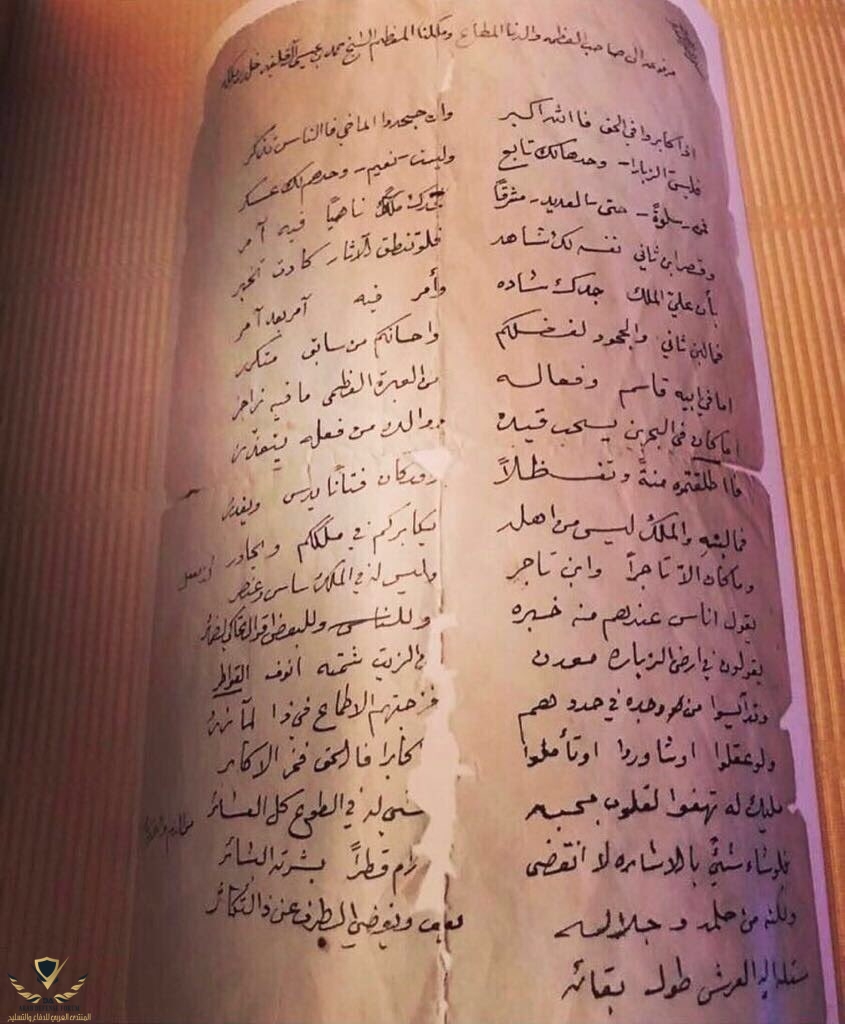 مرفوعه الى صاحب العظمه والدنا المطاع وملكنا المعظم الشيخ حمد بن عيسى آل خليفه
اذا كابروا في الحق فا الله اكبر وان جحدوا الماضي فا الناس تذكر
فليس الزباره وحدها لك تابع وليست نعيم وحدهم لك عسكر
فمن سلوةً حتى العديد مشرقاً بجدك ملك ناهياً فيه آمر
وقصر ابن ثاني نفسه لك شاهد فلو تنطق الآثار كادت تخبر
بأن علي الملك جدك شاده وأمر فيه آمر بعد آمر
فما لابن ثاني والجحود لفضلكم واحسانكم من سابق متكرر
اما في ابيه قاسم وفعاله من العبرة العظمى ما فيه زاجر
اما كان في البحرين يسحب قيده ووالده من فعله يتعذر
فا اطلقتموه منةً وتفضلاً وقد كان فتاناً يدس ويغدر
فما لبنيه والملك ليس من اهله يكابركم في ملككم ويجادر
وما كان الا تاجراً وابن تاجر وليس له في الملك ساس وعنصر
يقول اناس عندهم منه خبره وللناس وللبعض اقوال
يقولون في ارض الزباره معدن من الزيت شمته انوف القواطر
وقد أيسوا من وجده في حدودهم فزحتهم الاطماع في ذا
ولو عقلوا او شاوروا او تأملوا كابرا فا الحق فخر الاكابر
مليك له تهفوا لقلوب محبه له في الطوع كل العشائر
فلو شاء شيئ بالاشاره لا انقضى رام قطراً بشرته البشائر
ولكنه من حلمه وجلاله ويغضي الطرف عن ذا التكاثر
العرش طول بقائه
المنتدى العربي للدفاع والتسليح